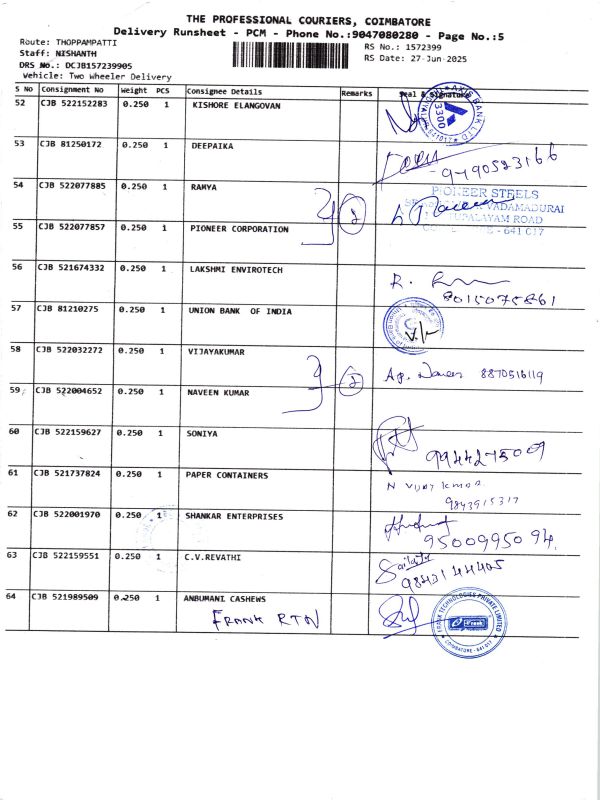 THE PROFESSIONAL COURIERS, COIMBATORE
Delivery Runsheet - PCM - Phone No.:9047080280 - Page No.:5
Route: THOPPAMPATTI
Staff: NISHANTH
DRS No.: DCJB157239905
Vehicle: Two Wheeler Delivery
RS No.: 1572399
RS Date: 27-Jun-2025
S No Consignment No Weight PCS Consignee Details Remarks Seal & Signature
52 CJB 522152283 0.250 1 KISHORE ELANGOVAN
AXIS BANK LTD
3300
53 CJB 81250172 0.250 1 DEEPAIKA
9790523166
54 CJB 522077885 0.250 1 RAMYA
2
PIONEER STEELS
VADAMADURAI
TUPALAYAM ROAD
- 641 017
55 CJB 522077857 0.250 1 PIONEER CORPORATION
56 CJB 521674332 0.250 1 LAKSHMI ENVIROTECH
R.
8015075861
57 CJB 81210275 0.250 1 UNION BANK OF INDIA
58 CJB 522032272 0.250 1 VIJAYAKUMAR
2
8870516119
59 CJB 522004652 0.250 1 NAVEEN KUMAR
60 CJB 522159627 0.250 1 SONIYA
9944275009
61 CJB 521737824 0.250 1 PAPER CONTAINERS
N VIJAY KUMAR
9843915317
62 CJB 522001970 0.250 1 SHANKAR ENTERPRISES
9500995094
63 CJB 522159551 0.250 1 C.V.REVATHI
Sailaja
9843144405
64 CJB 521989509 0.250 1 ANBUMANI CASHEWS
FRANK RTN
FRANK TECHNOLOGIES PRIVATE LIMITED
Frank
COIMBATORE - 641 017